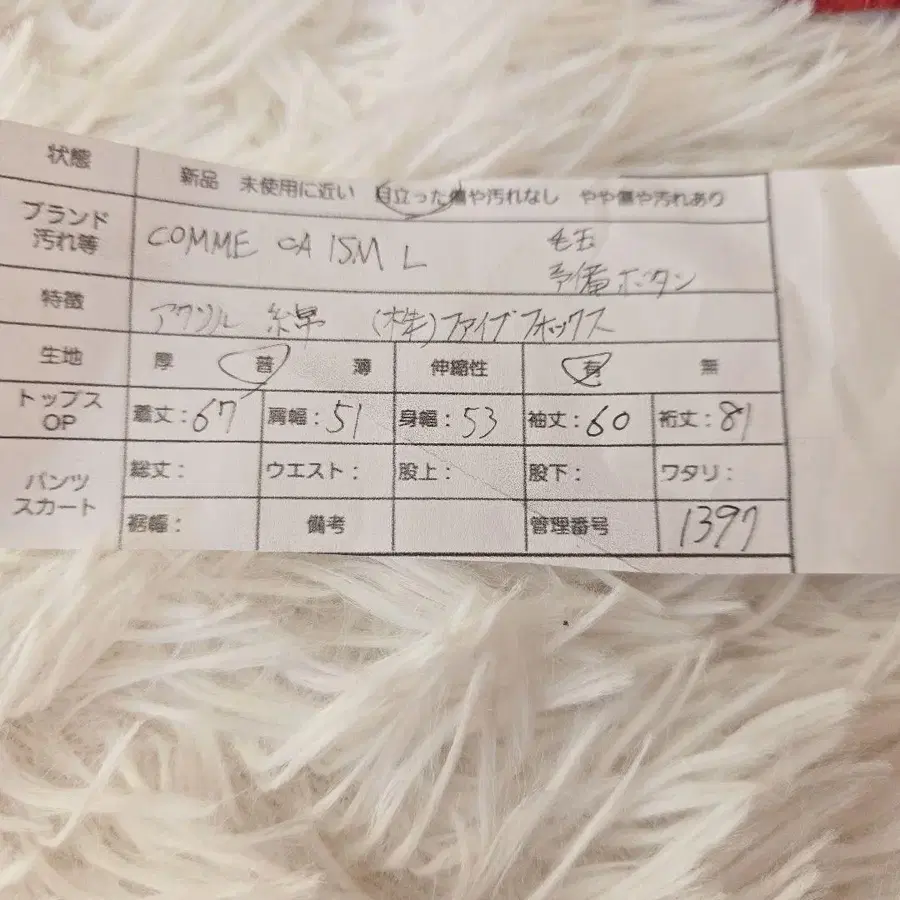 状態 新品 未使用に近い 目立った傷や汚れなし やや傷や汚れあり
ブランド
汚れ等 COMME CA ISM L 毛玉
予備ボタン
特徴 アクリル 綿 (株)ファイブフォックス
生地 厚 普 薄 伸縮性 有 無
トップス
OP 着丈:67 肩幅:51 身幅:53 袖丈:60 裄丈:81
パンツ
スカート 総丈: ウエスト: 股上: 股下: ワタリ:
裾幅: 備考 管理番号 1397